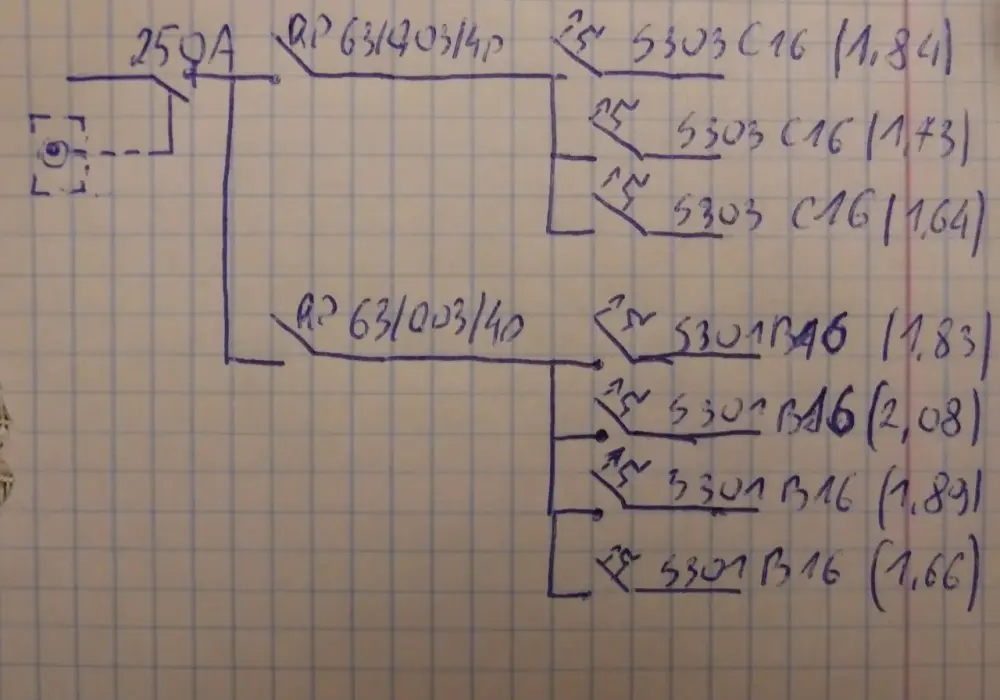 250A RP 63/003/4p S303 C16 (1,84)
S303 C16 (1,73)
S303 C16 (1,64)
RP 63/003/4p S301 B16 (1,83)
S301 B16 (2,08)
S301 B16 (1,89)
S301 B16 (1,66)